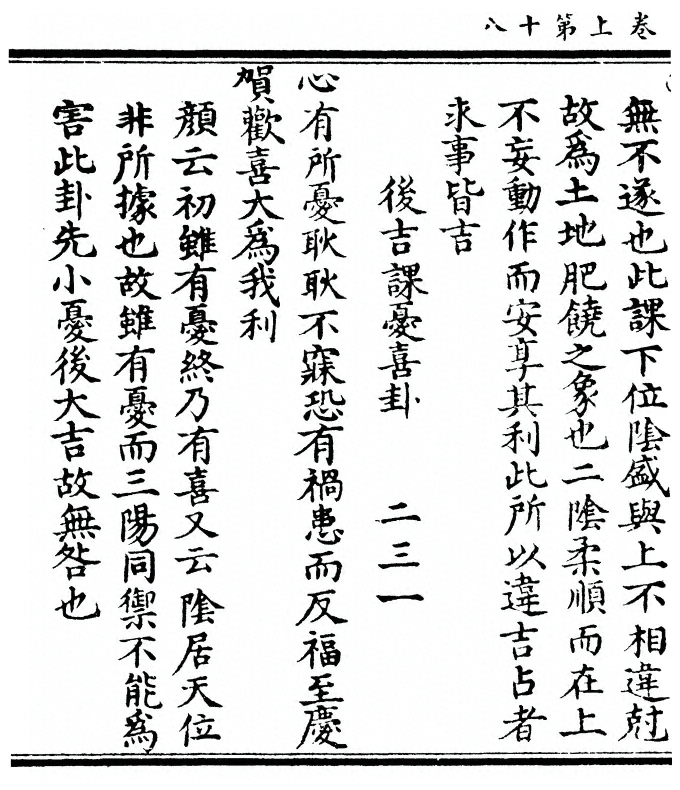 卷上第十八
無不遂也此課下位陰盛與上不相違尅
故爲土地肥饒之象也二陰柔順而在上
不妄動作而安享其利此所以違吉占者
求事皆吉
後吉課憂喜卦 二三一
心有所憂耿耿不寐恐有禍患而反福至慶
賀歡喜大爲我利
顔云初雖有憂終乃有喜又云陰居天位
非所據也故雖有憂而三陽同禦不能爲
害此卦先小憂後大吉故無咎也